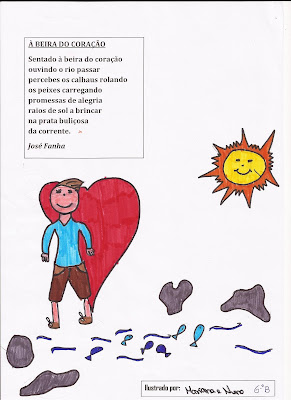 À BEIRA DO CORAÇÃO
Sentado à beira do coração
ouvindo o rio passar
percebes os calhaus rolando
os peixes carregando
promessas de alegria
raios de sol a brincar
na prata buliçosa
da corrente.
José Fanha
Ilustrado por: Mariana e Nuno 6ºB